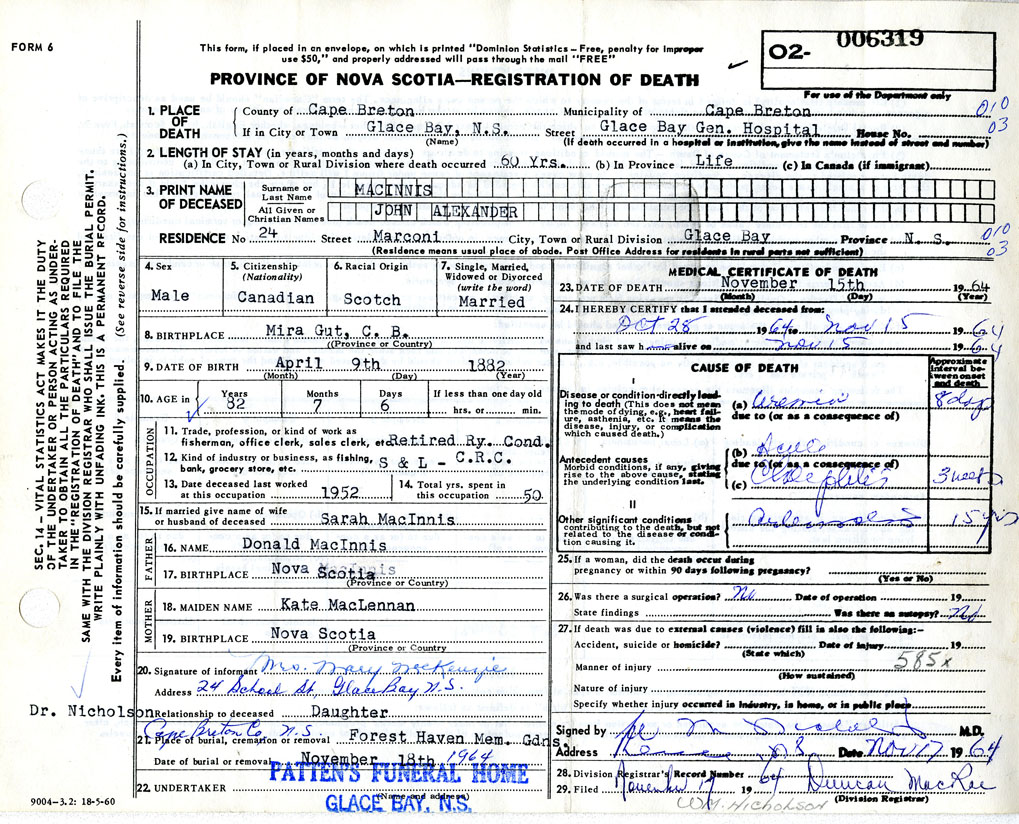 FORM 6
This form, if placed in an envelope, on which is printed "Dominion Statistics – Free, penalty for improper
use $50," and properly addressed will pass through the mail "FREE"
PROVINCE OF NOVA SCOTIA—REGISTRATION OF DEATH
O2- 006319
For use of the Department only
SEC. 14 – VITAL STATISTICS ACT MAKES IT THE DUTY
OF THE UNDERTAKER OR PERSON ACTING AS UNDER-
TAKER TO OBTAIN ALL THE PARTICULARS REQUIRED
IN THE "REGISTRATION OF DEATH" AND TO FILE THE
SAME WITH THE DIVISION REGISTRAR WHO SHALL ISSUE THE BURIAL PERMIT.
WRITE PLAINLY WITH UNFADING INK. THIS IS A PERMANENT RECORD.
Every item of information should be carefully supplied. (See reverse side for instructions.)
1. PLACE OF DEATH
County of Cape Breton Municipality of Cape Breton 010
If in City or Town Glace Bay, N.S. Street Glace Bay Gen. Hospital House No. 03
(Name) (If death occurred in a hospital or institution, give the name instead of street and number)
2. LENGTH OF STAY (in years, months and days)
(a) In City, Town or Rural Division where death occurred 60 Yrs. (b) In Province Life (c) In Canada (if immigrant)
3. PRINT NAME OF DECEASED
Surname or Last Name MACINNIS
All Given or Christian Names JOHN ALEXANDER
RESIDENCE No 24 Street Marconi City, Town or Rural Division Glace Bay Province N. S. 010 03
(Residence means usual place of abode. Post Office Address for residents in rural parts not sufficient)
4. Sex Male
5. Citizenship (Nationality) Canadian
6. Racial Origin Scotch
7. Single, Married, Widowed or Divorced (write the word) Married
8. BIRTHPLACE Mira Gut, C. B.
(Province or Country)
9. DATE OF BIRTH April 9th 1882
(Month) (Day) (Year)
10. AGE in Years 82 Months 7 Days 6 If less than one day old hrs. or min.
OCCUPATION
11. Trade, profession, or kind of work as
fisherman, office clerk, sales clerk, etc. Retired Ry. Cond.
12. Kind of industry or business, as fishing,
bank, grocery store, etc. S & L - C.R.C.
13. Date deceased last worked at this occupation 1952
14. Total yrs. spent in this occupation 50
15. If married give name of wife
or husband of deceased Sarah MacInnis
FATHER
16. NAME Donald MacInnis
17. BIRTHPLACE Nova Scotia
(Province or Country)
MOTHER
18. MAIDEN NAME Kate MacLennan
19. BIRTHPLACE Nova Scotia
(Province or Country)
20. Signature of informant Mrs. Mary MacKenzie
Address 24 School St, Glace Bay N.S.
Dr. Nicholson
Relationship to deceased Daughter
Cape Breton Co. N.S.
21. Place of burial, cremation or removal Forest Haven Mem. Gdns.
Date of burial or removal November 18th 1964
22. UNDERTAKER
PATTEN'S FUNERAL HOME
(Name and address)
GLACE BAY, N.S.
MEDICAL CERTIFICATE OF DEATH
23. DATE OF DEATH November 15th 1964
(Month) (Day) (Year)
24. I HEREBY CERTIFY that I attended deceased from:
Oct 28 1964 to Nov 15 1964
and last saw h alive on Nov 15 1964
CAUSE OF DEATH
Approximate interval between onset and death
I
Disease or condition directly leading to death (This does not mean the mode of dying, e.g., heart failure, asthenia, etc. It means the disease, injury, or complication which caused death.)
(a) Uremia 8 days
due to (or as a consequence of)
Antecedent causes
Morbid conditions, if any, giving rise to the above cause, stating the underlying condition last.
(b) Acute
due to (or as a consequence of)
(c) 3 weeks
II
Other significant conditions
contributing to the death, but not related to the disease or condition causing it.
15 yrs
25. If a woman, did the death occur during
pregnancy or within 90 days following pregnancy?
(Yes or No)
26. Was there a surgical operation? No Date of operation 19
State findings Was there an autopsy? No
27. If death was due to external causes (violence) fill in also the following:–
Accident, suicide or homicide? Date of injury 19
(State which)
585x
Manner of injury
(How sustained)
Nature of injury
Specify whether injury occurred in industry, in home, or in public place
Signed by M.D.
Address N.S. Date Nov 17 1964
28. Division Registrar's Record Number
29. Filed November 17 1964 Duncan MacRae
(Division Registrar)
WM. Nicholson
9004–3.2: 18-5-60